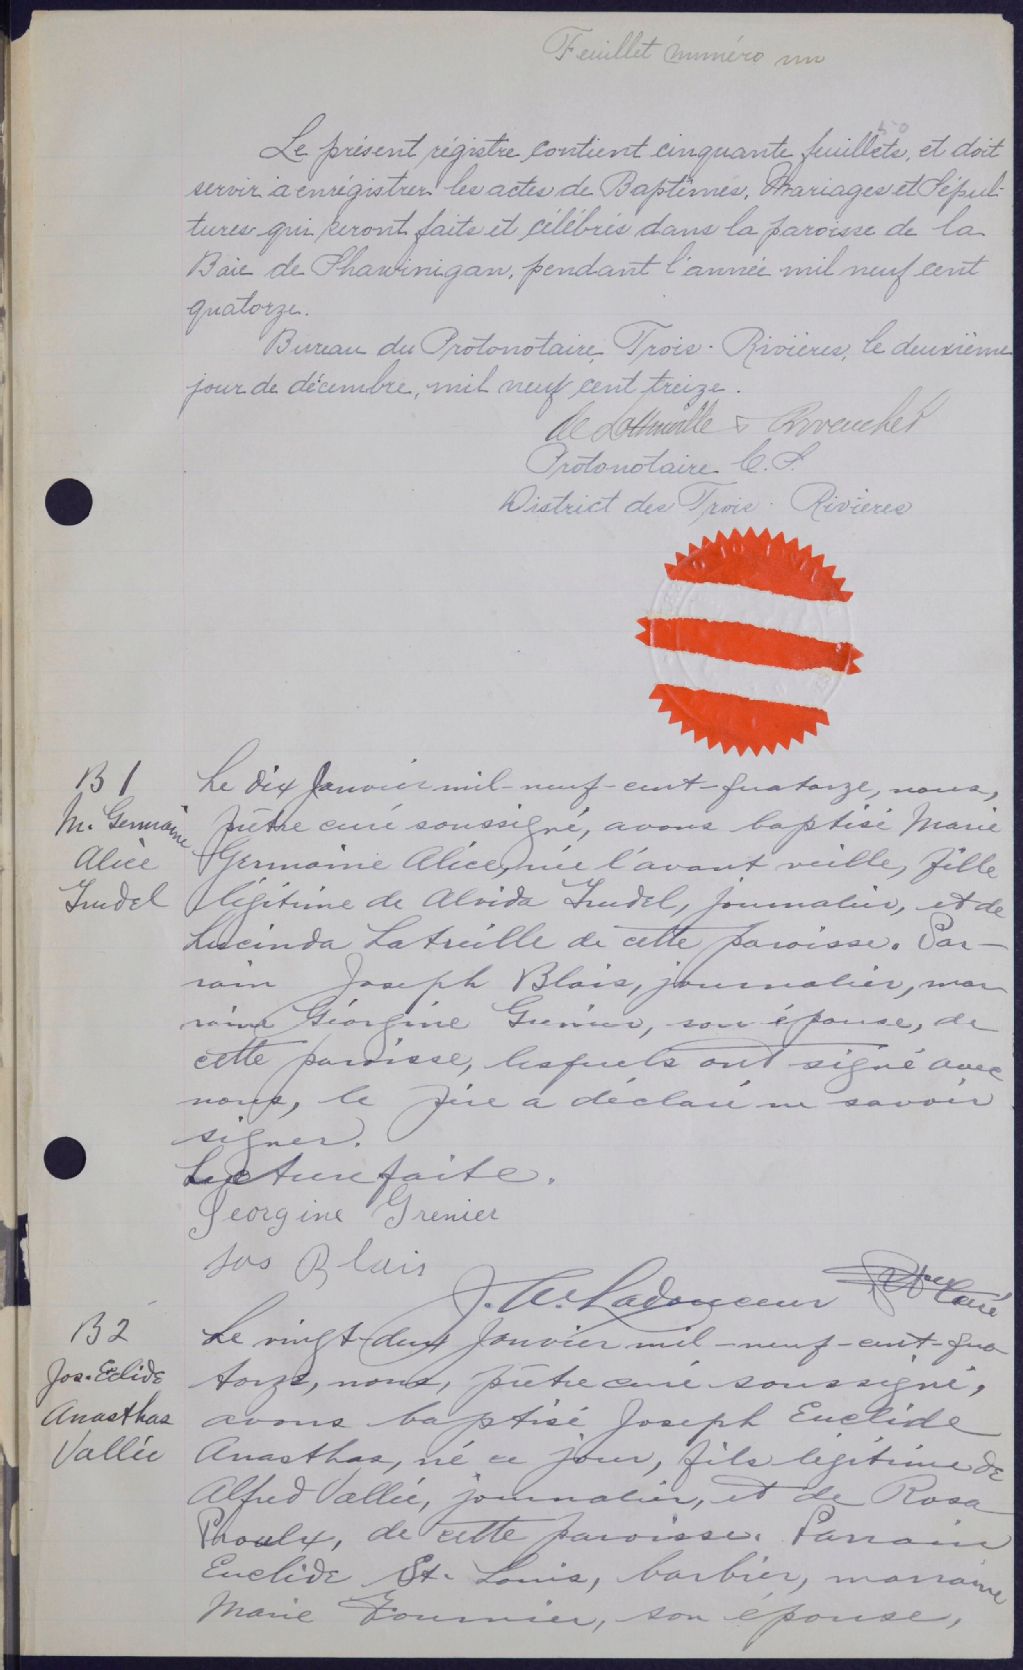 Feuillet numéro un
50
Le présent régistre contient cinquante feuillets, et doit
servir à enrégistrer les actes de Baptêmes, Mariages et Sépul-
tures qui seront faits et célébrés dans la paroisse de la
Baie de Shawinigan, pendant l'année mil neuf cent
quatorze.
Bureau du Protonotaire, Trois-Rivières, le deuxième
jour de décembre, mil neuf cent treize.
Protonotaire C. S.
District des Trois-Rivières
B 1
M. Germaine
Alice
Trudel
Le dix Janvier mil-neuf-cent-quatorze, nous,
prêtre curé soussigné, avons baptisé Marie
Germaine Alice, née l'avant veille, fille
légitime de Alvida Trudel, journalier, et de
Lucinda Latreille de cette paroisse. Par-
rain Joseph Blais, journalier, mar
raine Géorgine Grenier, son épouse, de
cette paroisse, lesquels ont signé avec
nous, le père a déclaré ne savoir
signer.
Lecture faite.
Georgine Grenier
Jos Blais
J. A. Ladouceur Ptre Curé
B 2
Jos. Eclide
Anasthas
Vallée
Le vingt-deux Janvier mil-neuf-cent-qua-
torze, nous, prêtre curé soussigné,
avons baptisé Joseph Euclide
Anasthas, né ce jour, fils légitime de
Alfred Vallée, journalier, et de Rosa
Proulx, de cette paroisse. Parrain
Euclide St. Louis, barbier, marraine
Marie Fournier, son épouse,